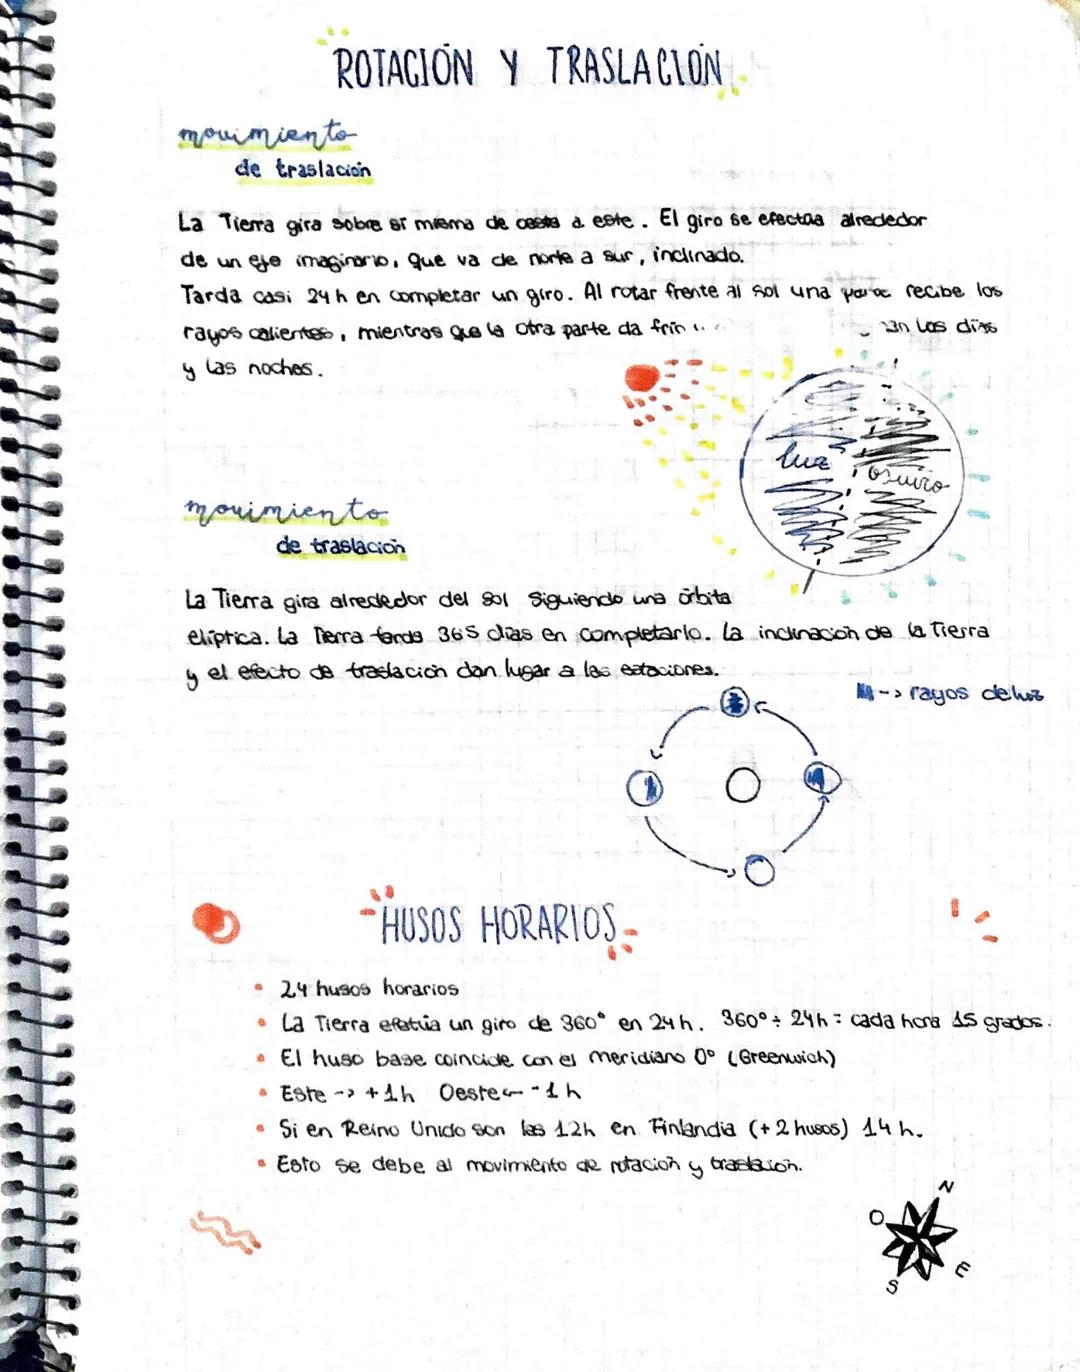 ROTACIÓN Y TRASLACIÓN
movimiento
de traslación
La Tierra gira sobre sí misma de oeste a este. El giro se efectúa alrededor
de un eje imaginario, que va de norte a sur, inclinado.
Tarda casi 24 h en completar un giro. Al rotar frente al sol una parte recibe los
rayos calientes, mientras que la otra parte da frío
los días
y las noches.
luz
oscuro
movimiento
de traslación
La Tierra gira alrededor del sol siguiendo una órbita
elíptica. La Tierra tarda 365 días en completarlo. La inclinación de la Tierra
y el efecto de traslación dan lugar a las estaciones.
--> rayos de luz
HUSOS HORARIOS
• 24 husos horarios
• La Tierra efetúa un giro de 360° en 24 h. 360° ÷ 24h = cada hora 15 grados.
• El huso base coincide con el meridiano 0° (Greenwich)
• Este --> +1h Oeste <-- -1h
• Si en Reino Unido son las 12h en Finlandia (+2 husos) 14 h.
• Esto se debe al movimiento de rotación y traslación.
N
O
E
S